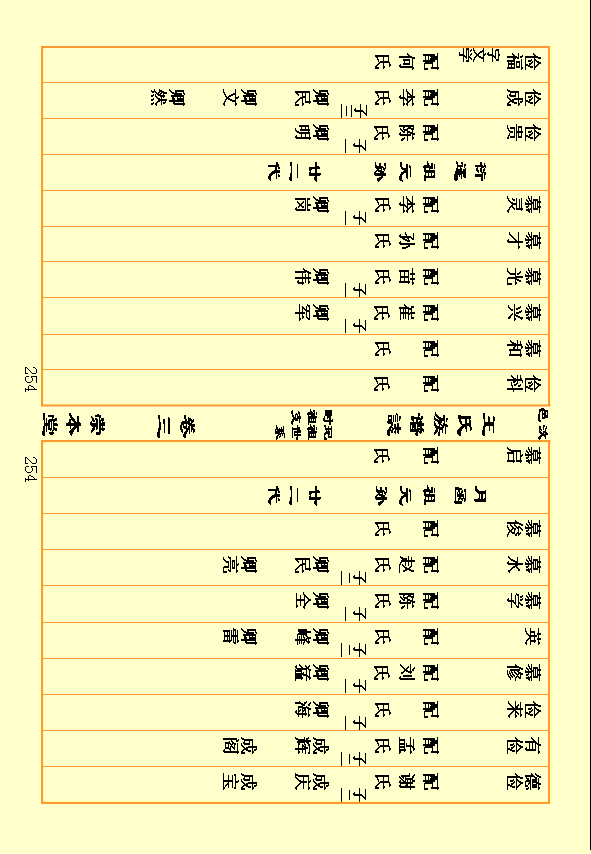 德俭 配谢氏 子二 成庆 成宝
有俭 配孟氏 子二 成辉 成阁
俭来 配氏 子一 卿海
慕修 配刘氏 子一 卿猛
英 配氏 子二 卿峰 卿雷
慕学 配陈氏 子一 卿全
慕永 配赵氏 子二 卿民 卿亮
慕俊 配氏
月函祖元孙廿二代
慕启 配氏
254
次邑 王氏族谱誌 现祖世系 时祖支 卷三 崇本堂
俭科 配氏
慕和 配氏
慕兴 配崔氏 子一 卿军
慕光 配苗氏 子一 卿伟
慕才 配孙氏
慕灵 配李氏 子一 卿岗
衍运祖元孙廿二代
俭贵 配陈氏 子一 卿明
俭成 配李氏 子三 卿民 卿文 卿然
俭福 字文学 配何氏
254